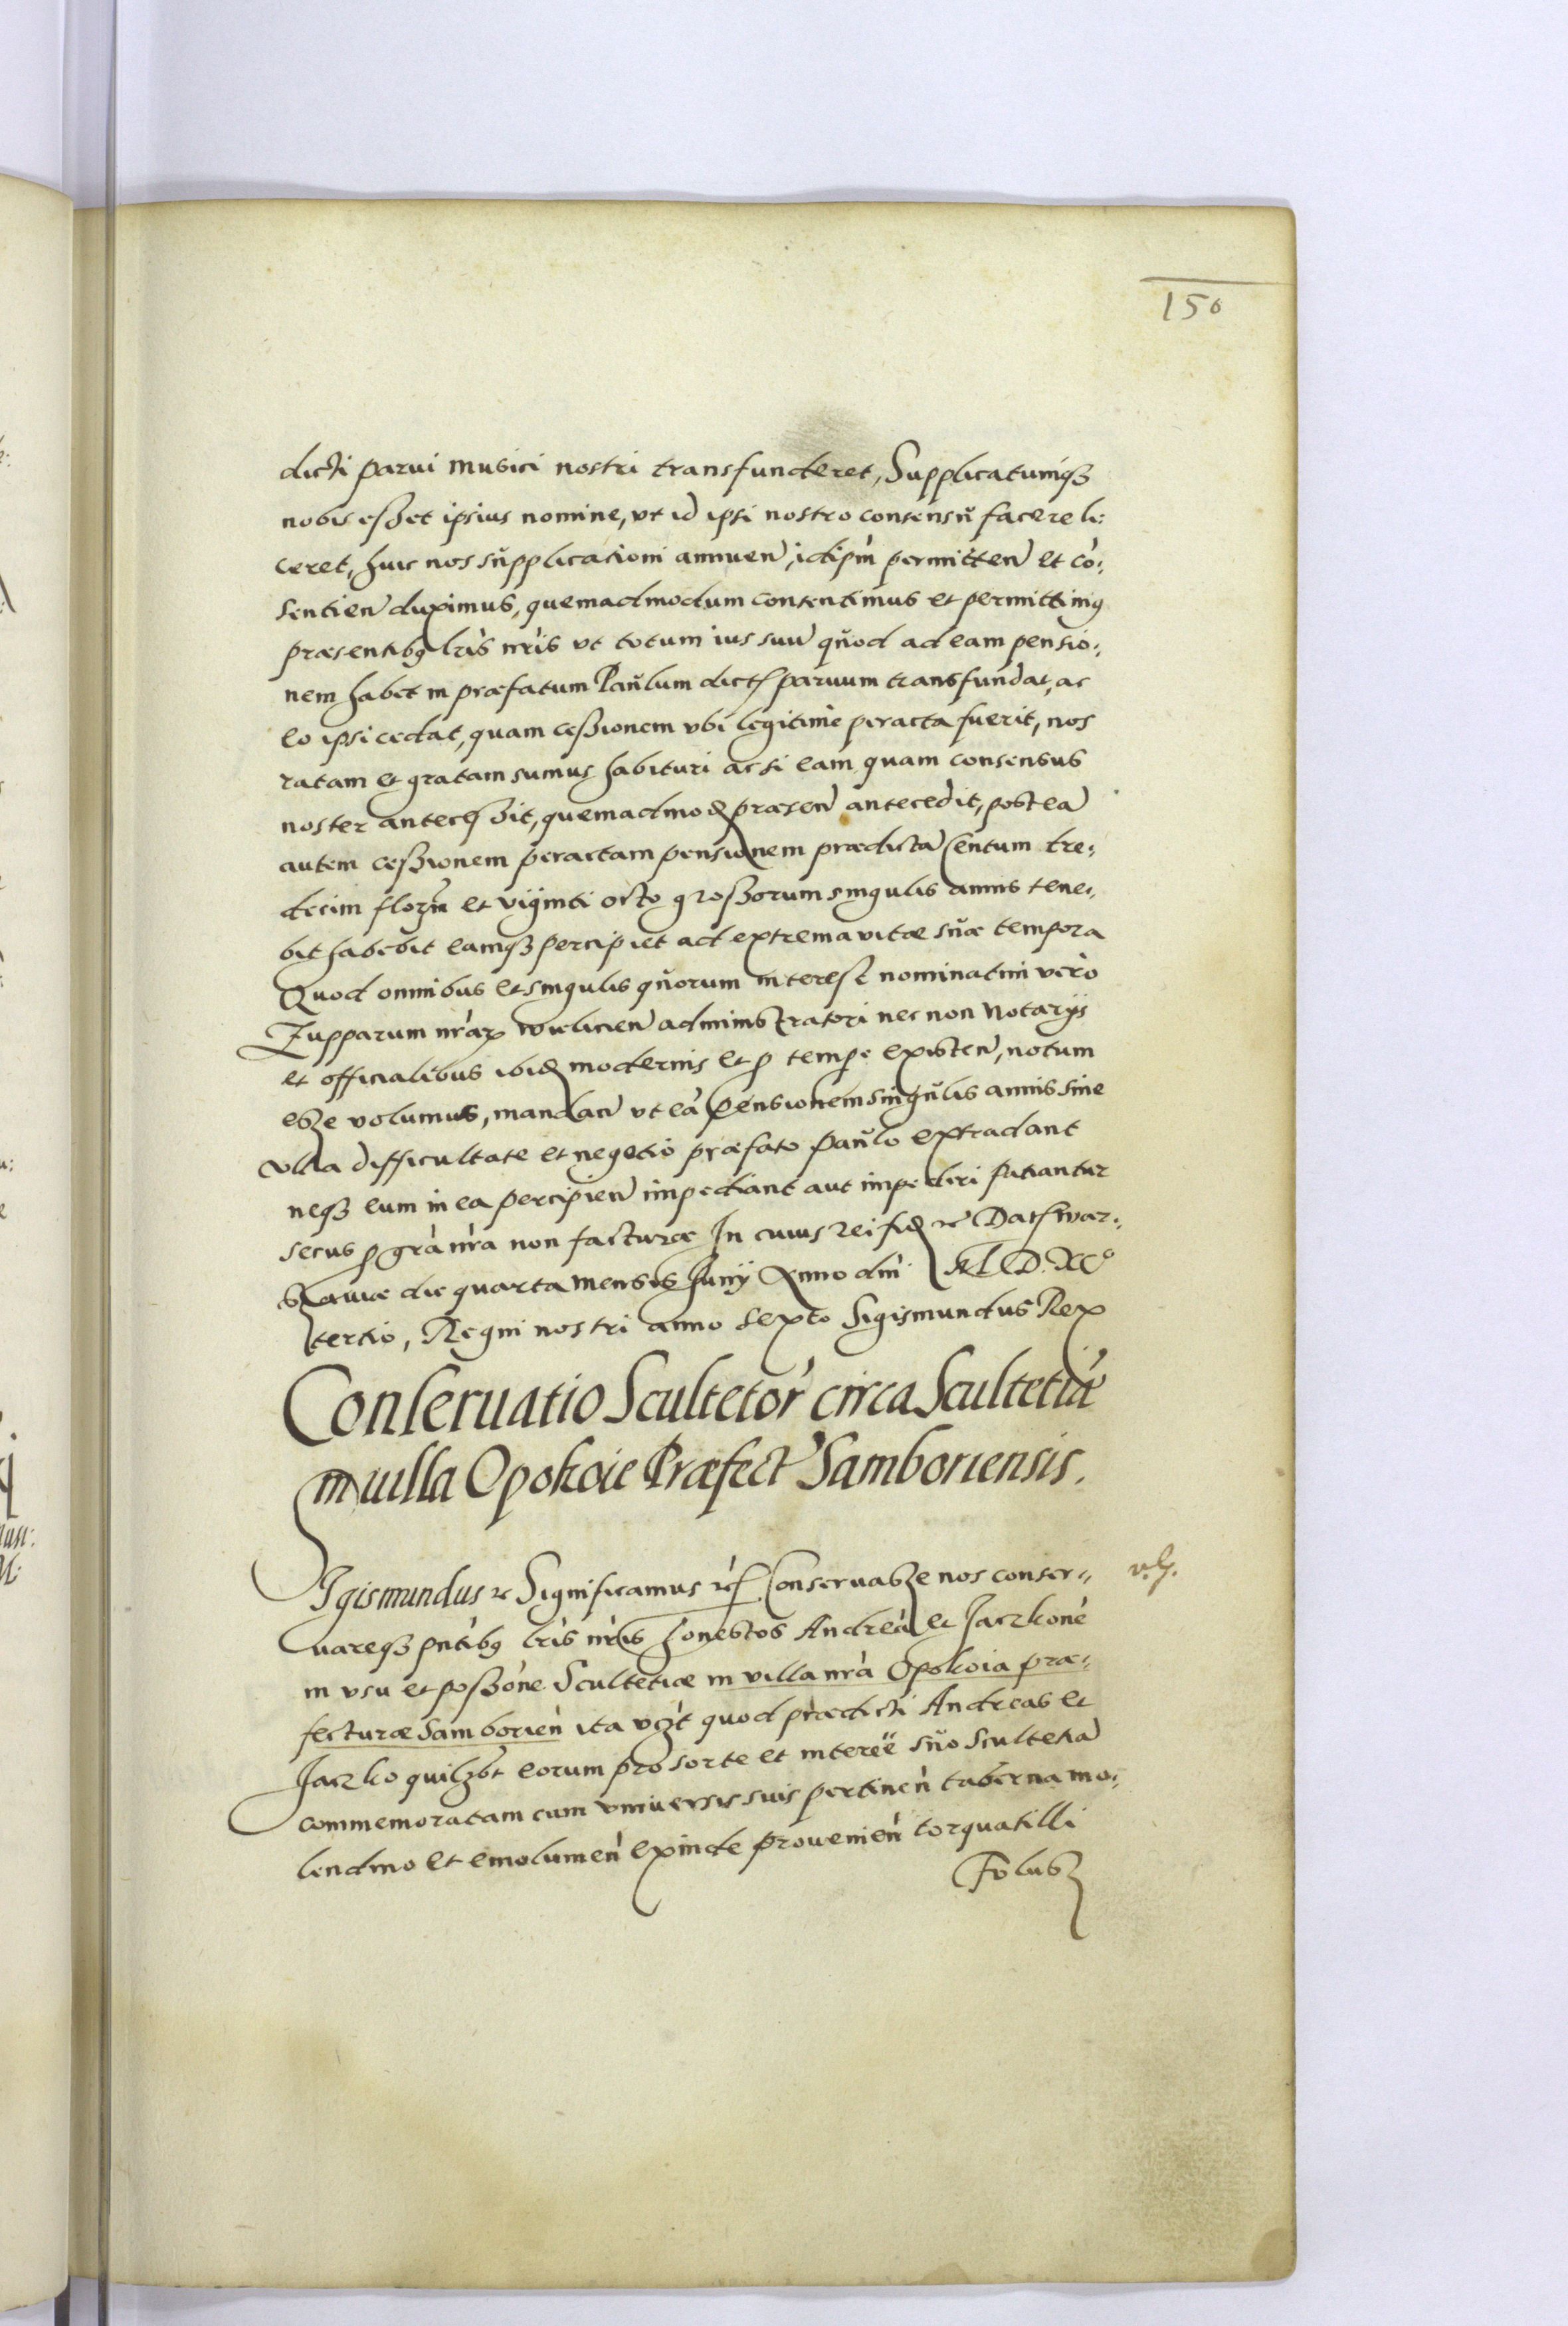 150
dicti parui musici nostri transfunderet, Supplicatumq3
nobis esset ipsius nomine, vt id ipsi nostro consensu facere li:
ceret, huic nos supplicationi annuen̄, idipm̄ permitten̄ et cō:
sentien̄ duximus, quemadmodum consentimus et permittimꝯ
præsentibꝯ lris nris vt totum ius suū quod ad eam pensio:
nem habet in præfatum Paulum dictꝭ paruum transfundat, ac
eo ipsi cedat, quam cessionem vbi legitime peracta fuerit, nos
ratam et gratam sumus habituri ac si eam quam consensus
noster, quemadmoꝺ præsen̄ antecedit, postea
autem cessionem peractam pensionem prædictā Centum tre:
decim et viginti octo grossorum singulis annis tene:
bit habebit eamq3 percipiet ad extrema vitæ suæ tempora
Quod omnibus et singulis quorum interest nominatim vero
Zupparum nrāꝝ Vielicien̄ administratori nec non Notarijs
et officialibus ibiꝺ modernis et ꝓ tempe existen̄, notum
esse volumus, mandan̄ vt eā pensionem singulis annis sine
vlla difficultate et negotio præfato Paulo extradant
neq3 eum in ea percipien̄ impediant aut impediri patiantur
secus ꝓ grā nrā non facturæ In cuius rei fiꝺ etc Datꝭ War:
szauiæ die quarta mensis Junij Anno dni M.D.XCo
tertio, Regni nostri anno sexto Sigismundus Rex
Conseruatio Scultetor̄ circa Scultetiā
in uilla Opokoie Præfect Samboriensis.
Sigismundus etc Significamus etc Conseruasse nos conser:
uareq3 pntibꝯ lris nris honestos Andreā et Jaczkonē
in vsu et possōne Scultetiæ in villa nrā Opokoia præ:
fecturæ Samborien̄ ita vczt quod prædicti Andreas et
Jaczko quilzbt eorum pro sorte et interee suo Scultetiā
commemoratam cum vniuersis suis pertinen̄ taberna mo:
lendino et emolumen̄ exinde prouenien̄ torquatilli
Folusz